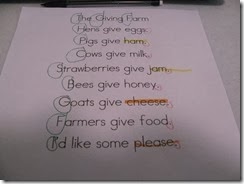 The Giving Farm
Hens give eggs.
Pigs give ham.
Cows give milk.
Strawberries give jam.
Bees give honey.
Goats give cheese.
Farmers give food.
I'd like some please.